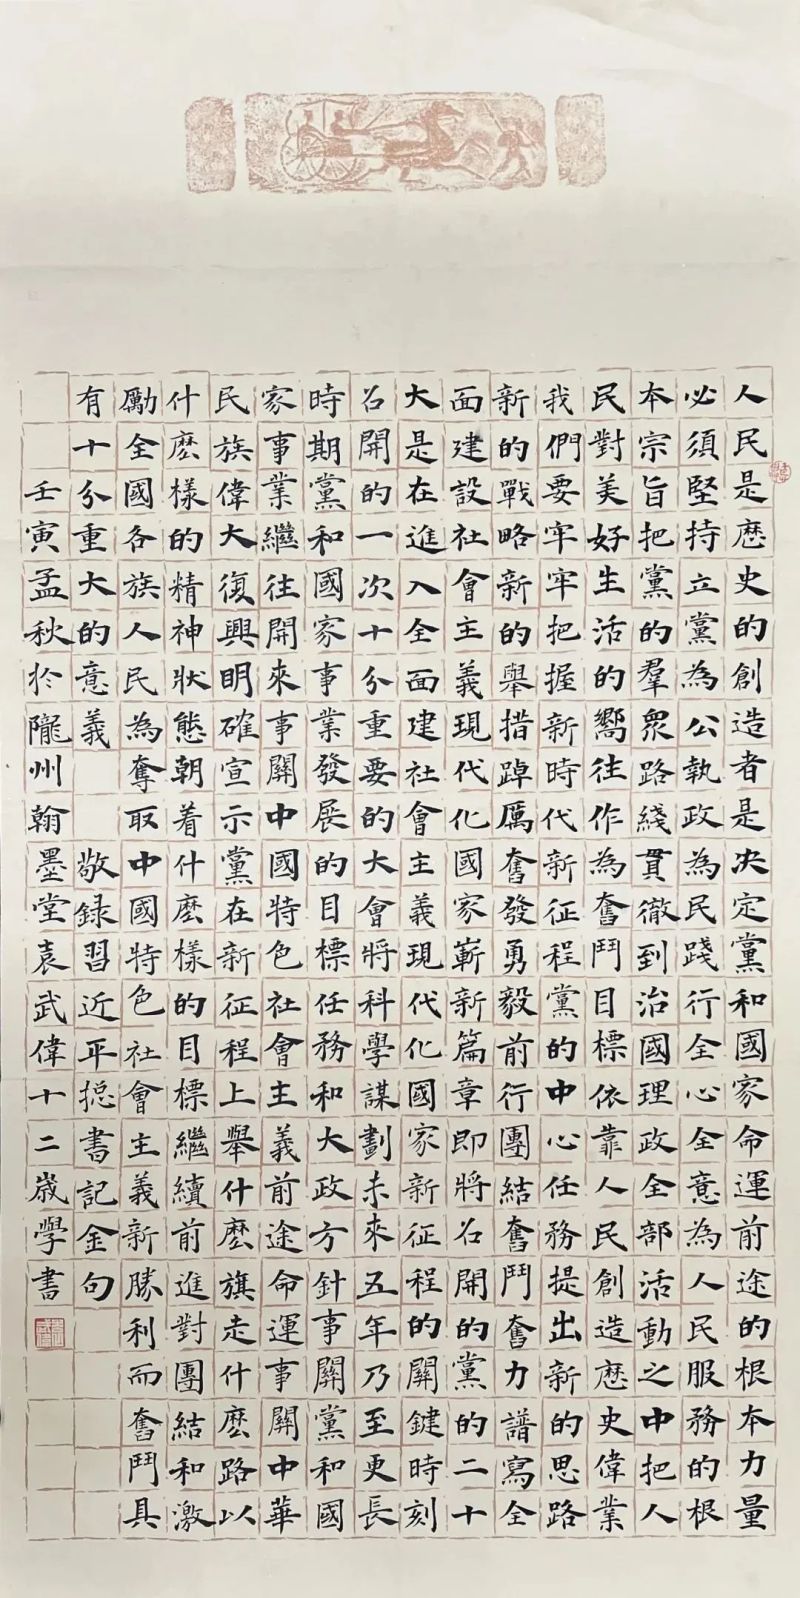 人民是歷史的創造者是决定黨和國家命運前途的根本力量
必須堅持立黨為公執政為民踐行全心全意為人民服務的根
本宗旨把黨的羣眾路綫貫徹到治國理政全部活動之中把人
民對美好生活的嚮往作為奮鬥目標依靠人民創造歷史偉業
我們要牢牢把握新時代新征程黨的中心任務提出新的思路
新的戰略新的舉措踔厲奮發勇毅前行團結奮鬥奮力譜寫全
面建設社會主義現代化國家嶄新篇章即將召開的黨的二十
大是在進入全面建社會主義現代化國家新征程的關鍵時刻
召開的一次十分重要的大會將科學謀劃未來五年乃至更長
時期黨和國家事業發展的目標任務和大政方針事關黨和國
家事業繼往開來事關中國特色社會主義前途命運事關中華
民族偉大復興明確宣示黨在新征程上舉什麽旗走什麽路以
什麽樣的精神狀態朝着什麽樣的目標繼續前進對團結和激
勵全國各族人民為奪取中國特色社會主義新勝利而奮鬥具
有十分重大的意義 敬録習近平揔書記金句
壬寅孟秋於隴州翰墨堂袁武偉十二歲學書